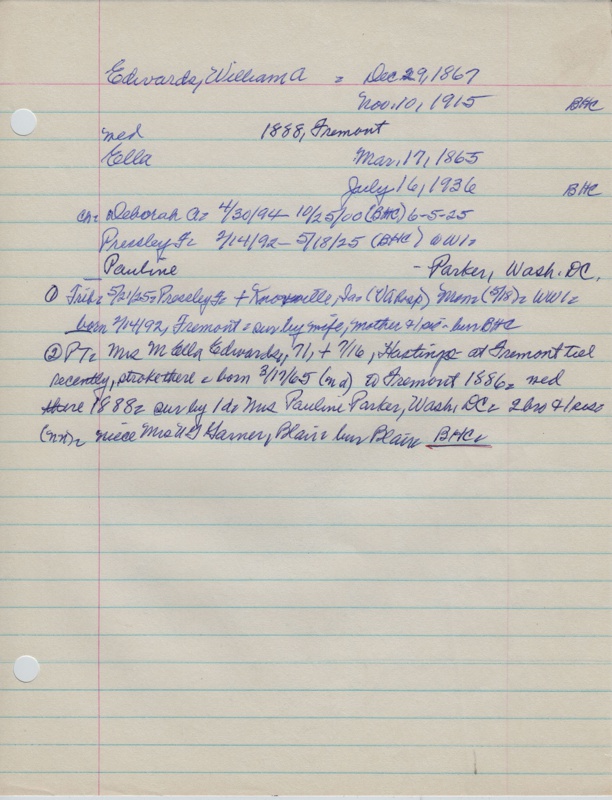 Edwards, William A = Dec 29, 1867
Nov. 10, 1915 BHC
med 1888, Fremont
Ella Mar, 17, 1865
July 16, 1936 BHC
ch= Deborah A= 4/30/94 - 10/25/00 (BHC) 6-5-25
Pressley F= 2/14/92 - 5/18/25 (BHC) WWI=
Pauline - Parker, Wash. DC,
① Trib= 5/21/25= Pressley F= + Knoxville, Ia= (VA Hosp) Mon= (5/18)= WWI=
born 2/14/92, Fremont = sur by wife, mother & 1 sis - bur BHC
② PT= Mrs M Ella Edwards, 71, + 7/16, Hastings - at Fremont til
recently, stroke there = born 3/17/65 (nd) to Fremont 1886= wed
there 1888= sur by 1 d= Mrs Pauline Parker, Wash, DC= 2 bro & 1 sis=
(nn)= niece Mrs Garner, Blair= bur Blair BHC=